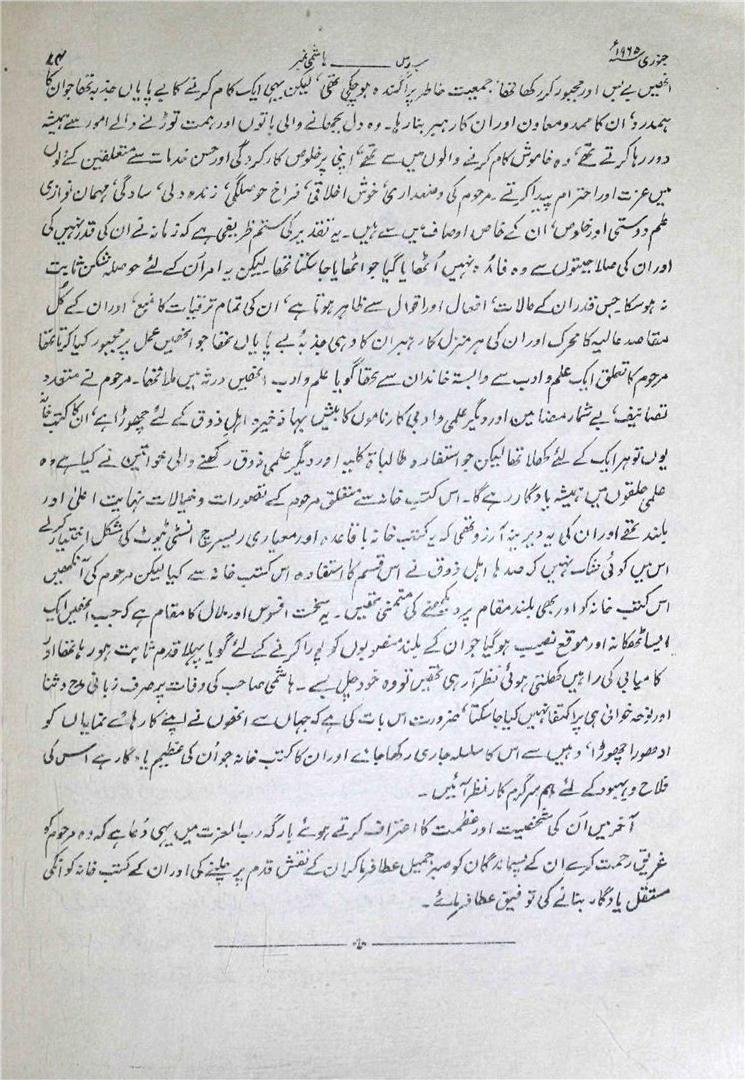 جنوری ۱۹۶۵ء سب رس ـــــــ ہاشمی نمبر ۸۴
انھیں بے بس اور مجبور کر رکھا تھا، جمعیت خاطر پراگندہ ہو چکی تھی، لیکن یہی ایک کام کرنے کا بے پایاں جذبہ تھا جو ان کا
ہمدرد، ان کا ممد و معاون اور ان کا رہبر بنا رہا۔ وہ دل بجھانے والی باتوں اور ہمت توڑنے والے امور سے ہمیشہ
دور رہا کرتے تھے، وہ خاموش کام کرنے والوں میں سے تھے، اپنی پر خلوص کارکردگی اور حسن خدمات سے متعلقین کے دلوں
میں عزت اور احترام پیدا کرتے۔ مرحوم کی وضعداری، خوش اخلاقی، فراخ حوصلگی، زندہ دلی، سادگی، مہمان نوازی
علم دوستی اور خلوص، ان کے خاص اوصاف میں سے ہیں۔ یہ تقدیر کی ستم ظریفی ہے کہ زمانہ نے ان کی قدر نہیں کی
اور ان کی صلاحیتوں سے وہ فائدہ نہیں اُٹھایا گیا جو اٹھایا جا سکتا تھا۔ لیکن یہ امر اُن کے لئے حوصلہ شکن ثابت
نہ ہو سکا جس قدر ان کے حالات، افعال اور اقوال سے ظاہر ہوتا ہے، ان کی تمام ترقیات کا منبع، اور ان کے کُل
مقاصد عالیہ کا محرک اور ان کی ہر منزل کا رہبر ان کا وہی جذبۂ بے پایاں تھا جو انھیں عمل پر مجبور کیا کرتا تھا
مرحوم کا تعلق ایک علم و ادب سے وابستہ خاندان سے تھا گویا علم و ادب انھیں ورثہ میں ملا تھا۔ مرحوم نے متعدد
تصانیف، بے شمار مضامین اور دیگر علمی و ادبی کارناموں کا بیش بہا ذخیرہ اہلِ ذوق کے لئے چھوڑا ہے، ان کا کتب خانہ
یوں تو ہر ایک کے لئے کھلا تھا لیکن جو استفادہ طالباۃ کلیہ اور دیگر علمی ذوق رکھنے والی خواتین نے کیا ہے وہ
علمی حلقوں میں ہمیشہ یادگار رہے گا۔ اس کتب خانہ سے متعلق مرحوم کے تصورات و خیالات نہایت اعلیٰ اور
بلند تھے اور ان کی یہ دیرینہ آرزو تھی کہ یہ کتب خانہ باقاعدہ اور معیاری ریسرچ انسٹی ٹیوٹ کی شکل اختیار کرلے
اس میں کوئی شک نہیں کہ صدہا اہل ذوق نے اس قسم کا استفادہ اس کتب خانہ سے کیا لیکن مرحوم کی آنکھیں
اس کتب خانہ کو اور بھی بلند مقام پر دیکھنے کی متمنی تھیں۔ یہ سخت افسوس اور ملال کا مقام ہے کہ جب انھیں ایک
ایسا ٹھکانہ اور موقع نصیب ہو گیا جو ان کے بلند منصوبوں کو پورا کرنے کے لئے گویا پہلا قدم ثابت ہو رہا تھا اور
کامیابی کی راہیں کھلتی ہوئی نظر آ رہی تھیں تو وہ خود چل بسے۔ ہاشمی صاحب کی وفات پر صرف زبانی مدح و ثنا
اور نوحہ خوانی ہی پر اکتفا نہیں کیا جا سکتا، ضرورت اس بات کی ہے کہ جہاں سے انھوں نے اپنے کارہائے نمایاں کو
ادھورا چھوڑا، وہیں سے اس کا سلسلہ جاری رکھا جائے اور ان کا کتب خانہ جو اُن کی عظیم یادگار ہے اس کی
فلاح و بہبود کے لئے ہم سرگرم کار نظر آئیں۔
آخر میں اُن کی شخصیت اور عظمت کا اعتراف کرتے ہوئے بارگہ رب العزت میں یہی دُعا ہے کہ وہ مرحوم کو
غریق رحمت کرے ان کے پسماندگان کو صبر جمیل عطا فرما کر ان کے نقش قدم پر چلنے کی اور ان کے کتب خانہ کو انکی
مستقل یادگار بنانے کی توفیق عطا فرمائے۔